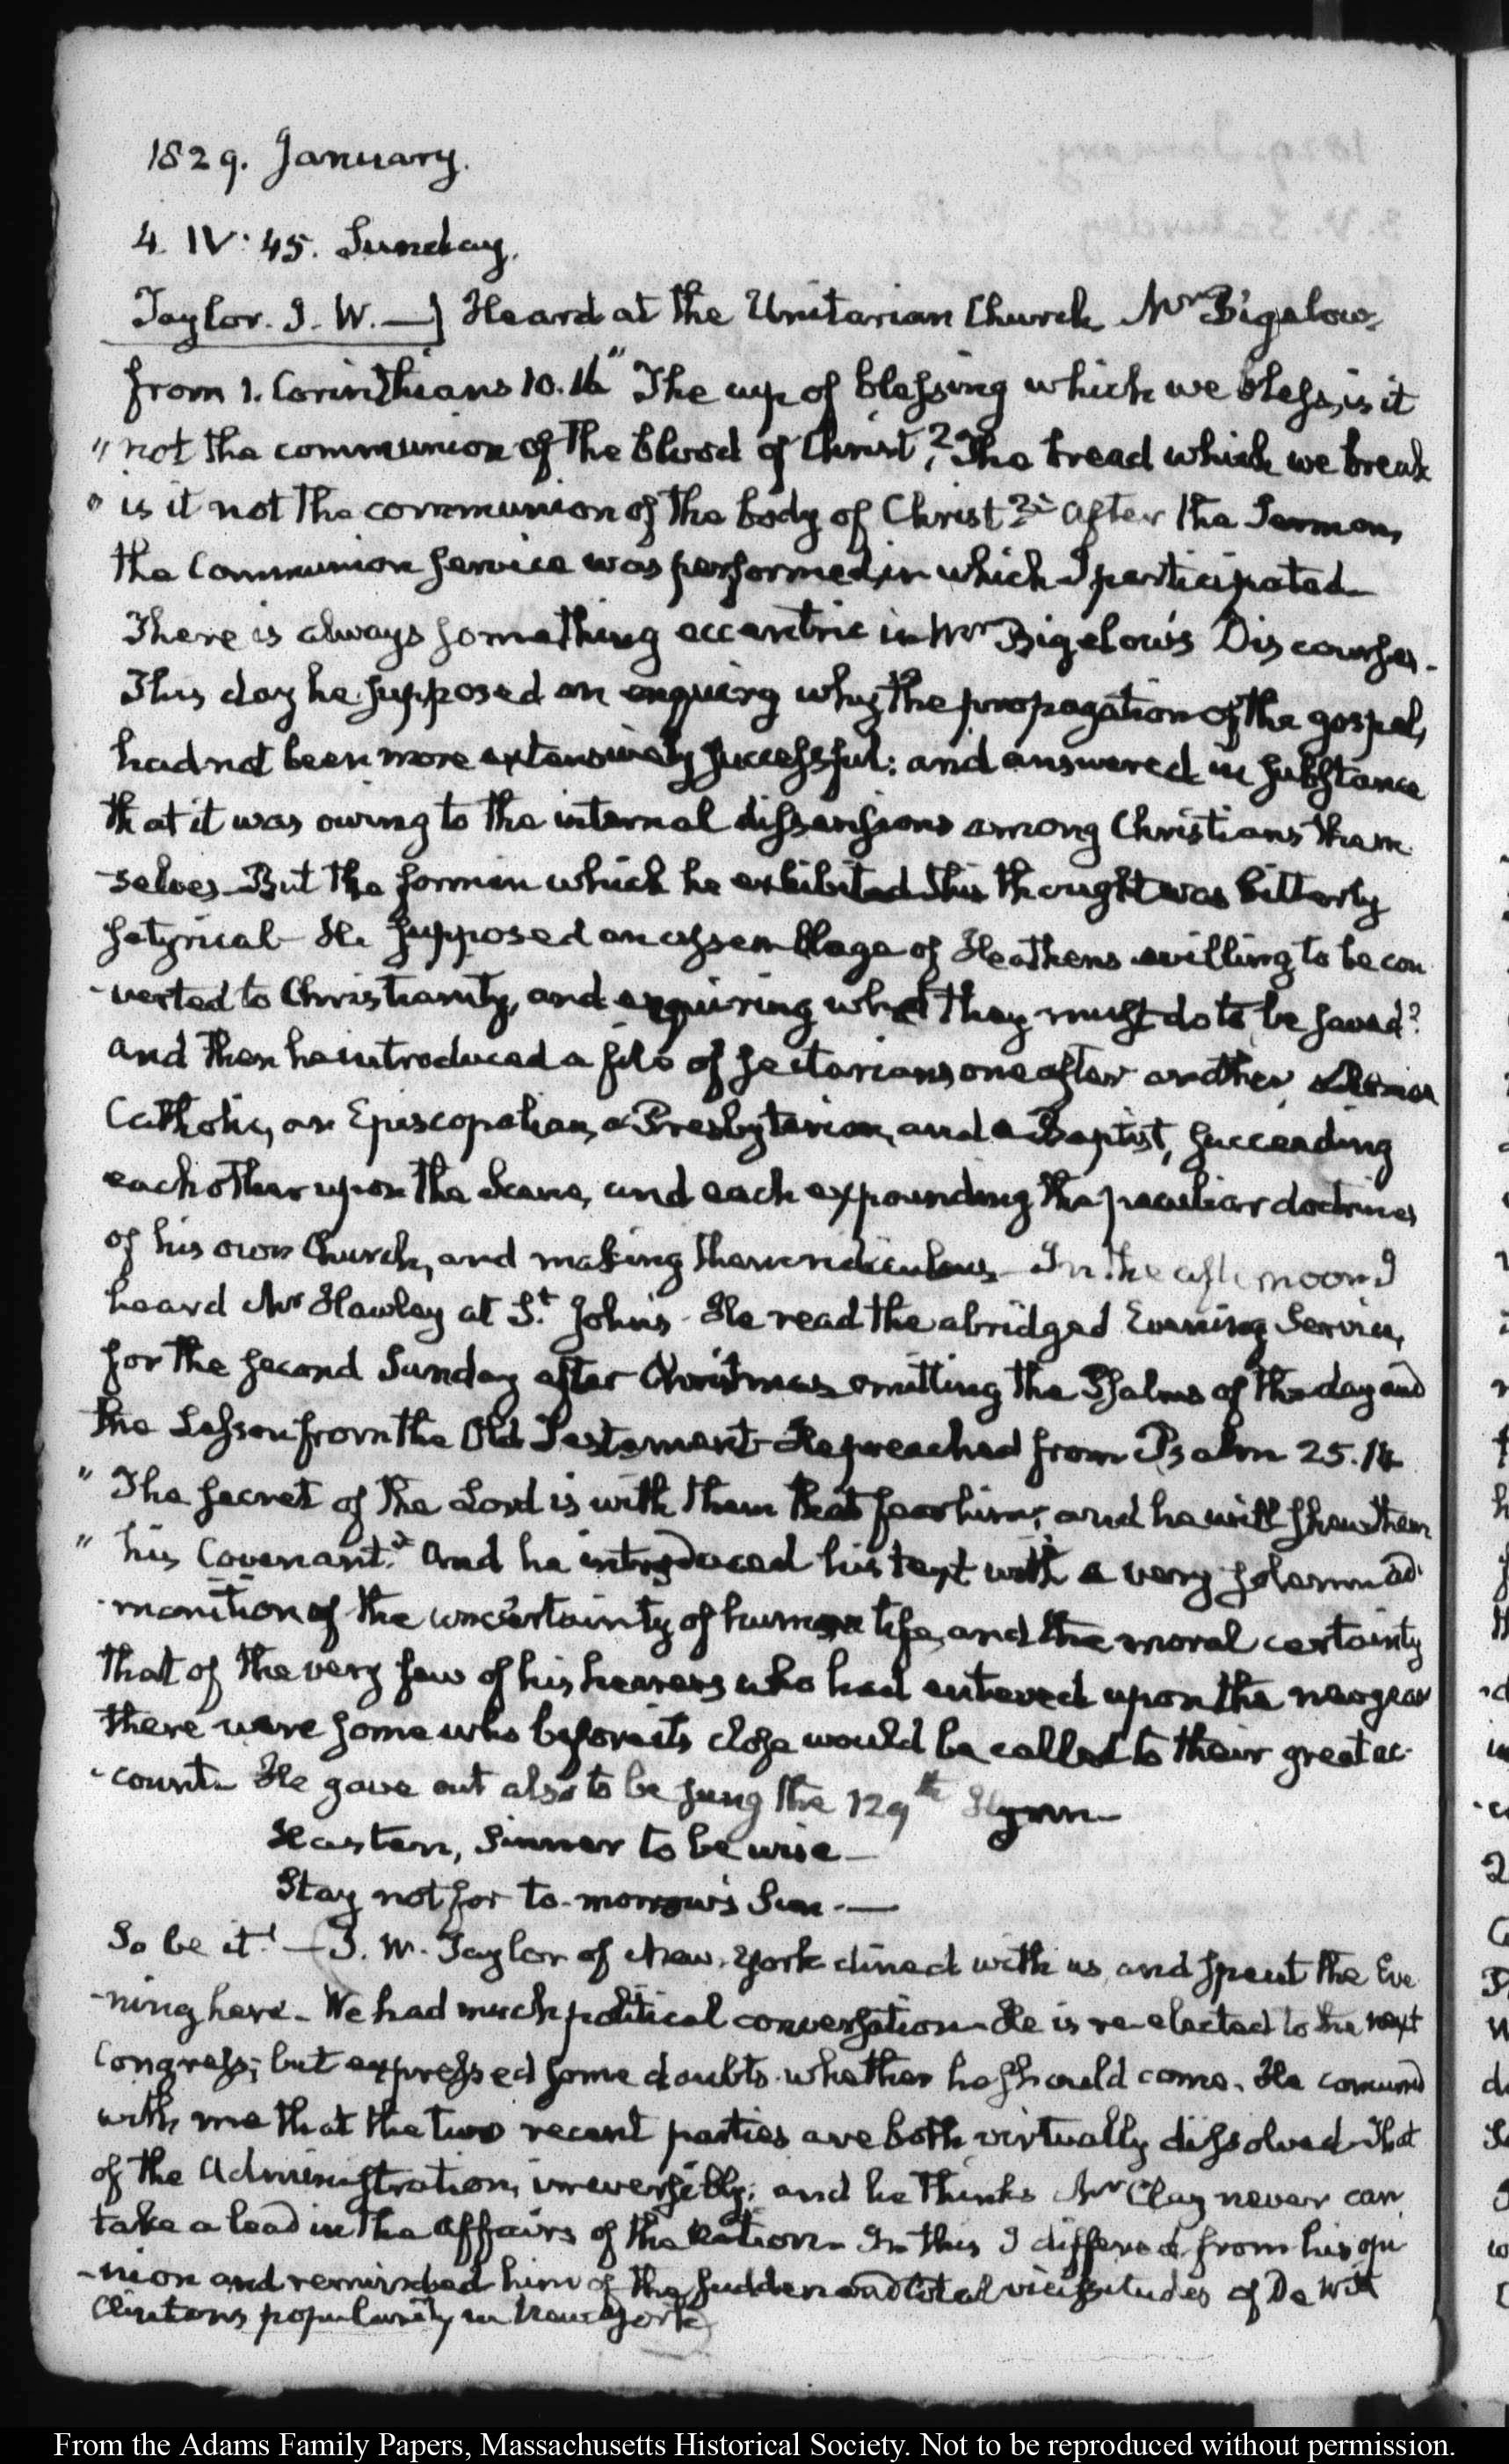 1829. January.
4. IV: 45. Sunday.
Taylor. J. W. —] Heard at the Unitarian Church Mr Bigelow,
from 1. Corinthians 10. 16 "The cup of blessing which we bless, is it
" not the communion of the blood of Christ,? The bread which we break
" is it not the communion of the body of Christ?" After the Sermon,
the Communion service was performed, in which I participated—
There is always something eccentric in Mr Bigelow's Discourses—
This day he supposed an enquiry why the propagation of the gospel,
had not been more extensively successful: and answered in substance
that it was owing to the internal dissensions among Christians them
-selves— But the form in which he exhibited this thought was bitterly
satyrical— He supposed an assemblage of Heathens willing to be con
-verted to Christianity, and enquiring what they must do to be saved?
and then he introduced a file of sectarians, one after another, a Roman
Catholic, an Episcopalian, a Presbyterian, and a Baptist, succeeding
each other upon the Scene, and each expounding the peculiar doctrines
of his own Church, and making them ridiculous— In the afternoon I
heard Mr Hawley at St. John's— He read the abridged Evening Service,
for the second Sunday after Christmas omitting the Psalms of the day and
the Lesson from the Old Testament— He preached from Psalm 25. 14
" The secret of the Lord is with them that fear him; and he will shew them
" his Covenant." And he introduced his text with a very solemn ad
-monition of the uncertainty of human life, and the moral certainty
that of the very few of his hearers who had entered upon the new year
there were some who before its close would be called to their great ac-
-count— He gave out also to be sung the 129th Hymn—
Hasten, Sinner to be wise—
Stay not for to-morrow's Sun.—
So be it!— J. W. Taylor of New-York dined with us, and spent the Eve
-ning here— We had much political conversation— He is re-elected to the next
Congress; but expressed some doubts whether he should come. He concurred
with me that the two recent parties are both virtually dissolved— That
of the Administration, irreversibly; and he thinks Mr Clay never can
take a lead in the affairs of the Nation— In this I differed from his opi
-nion and reminded him of the sudden and total vicissitudes of De Witt
Clinton's popularity in New York
From the Adams Family Papers, Massachusetts Historical Society. Not to be reproduced without permission.